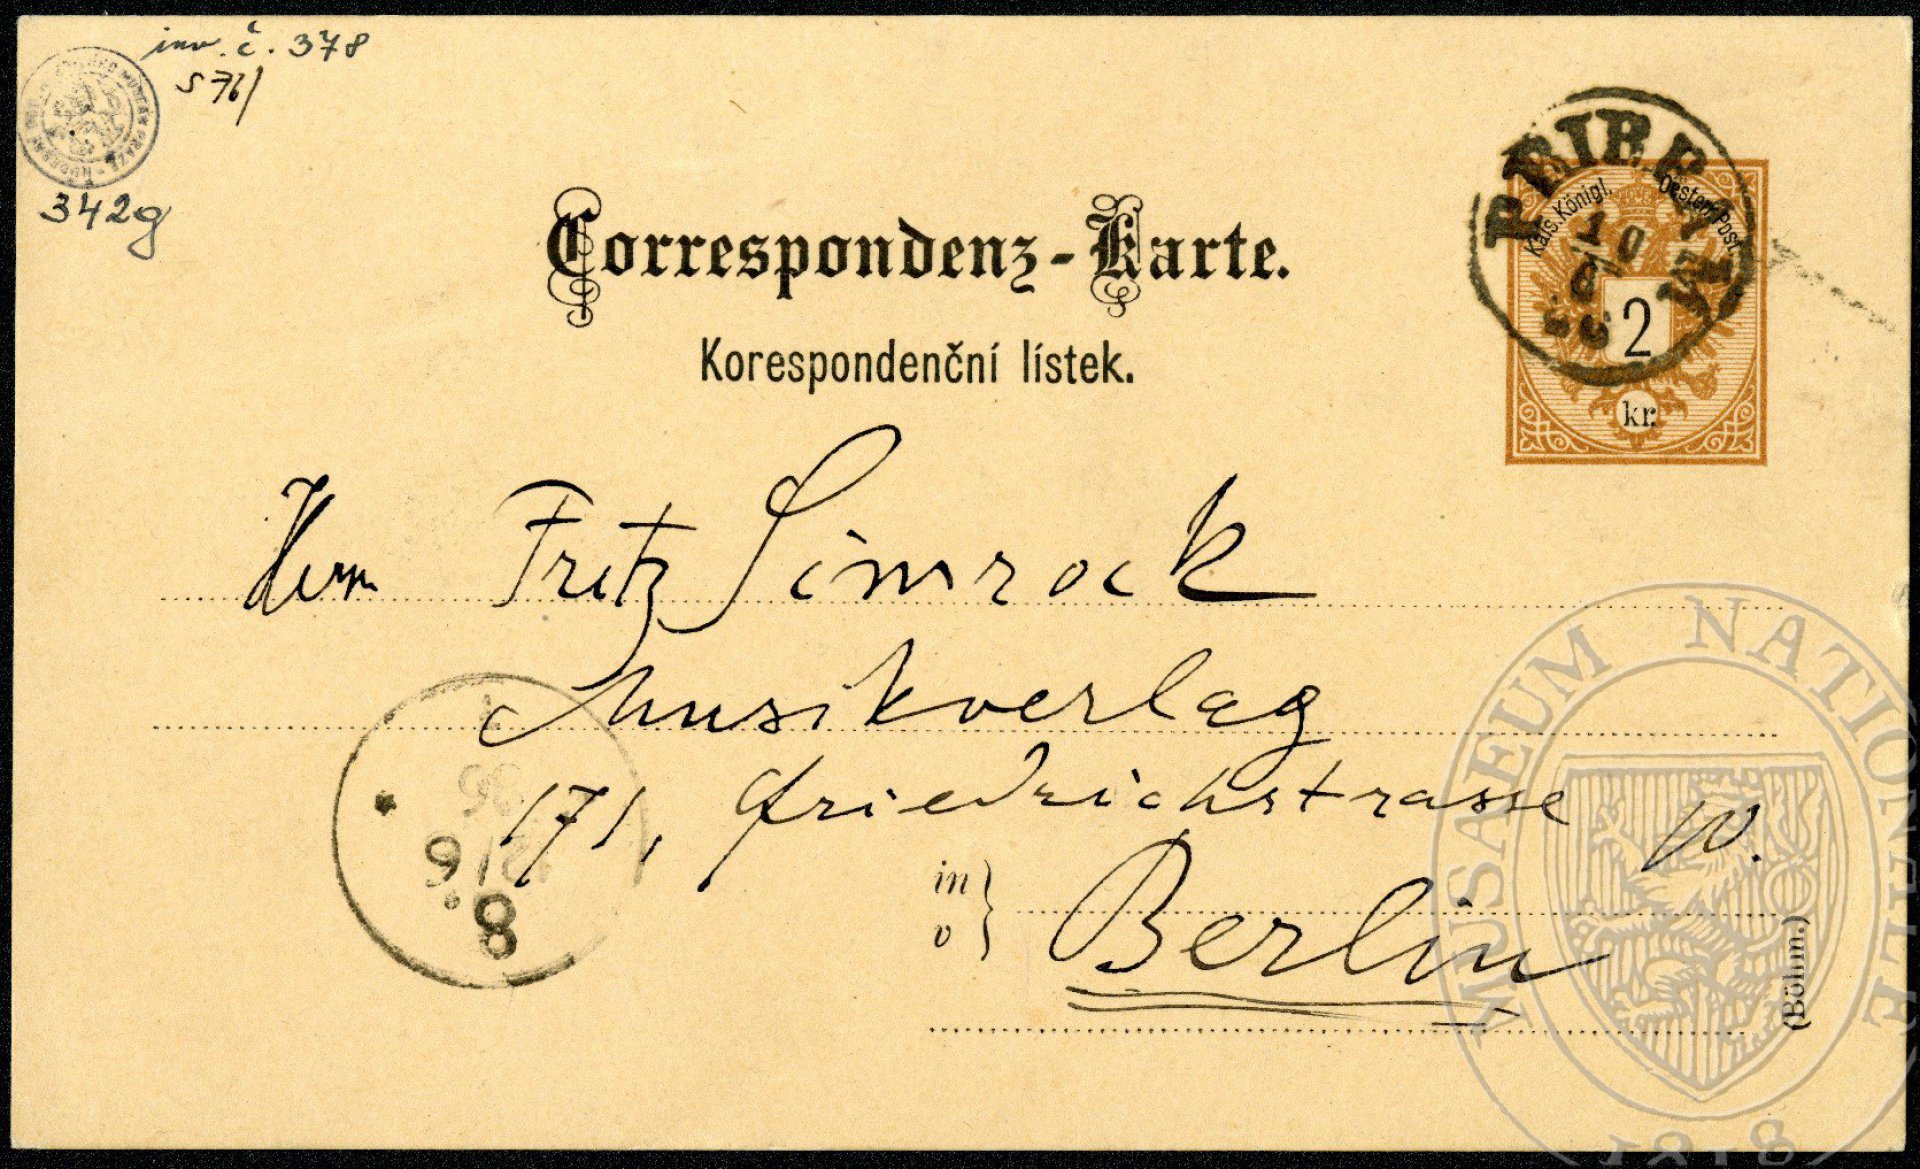 inv. č. 378
S 76/
342g
Correspondenz-Karte.
Korespondenční lístek.
Kais. Königl. Oesterr. Post
10
6
86
2
kr.
Herrn Fritz Simrock
Musikverlag
171, Friedrichstrasse W.
in
v
Berlin
(Böhm.)
8
MUSAEUM NATIONALE
1818